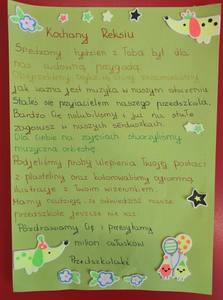 Kochany Reksiu
Spędzony tydzień z Tobą był dla
nas cudowną przygodą.
jak ważna jest muzyka w naszym otoczeniu
Stałeś się przyjacielem naszego przedszkola,
Bardzo Cię polubiliśmy i już na stałe
zagościsz w naszych serduszkach.
Dla Ciebie na zajęciach stworzyliśmy
muzyczną orkiestrę
Podjęliśmy próby ulepienia Twojej postaci
z plasteliny oraz kolorowaliśmy ogromną
ilustrację z Twoim wizerunkiem.
Mamy nadzieję, że odwiedzisz nasze
przedszkole jeszcze nie raz
Pozdrawiamy Cię i przesyłamy
milion całusków
Przedszkolaki